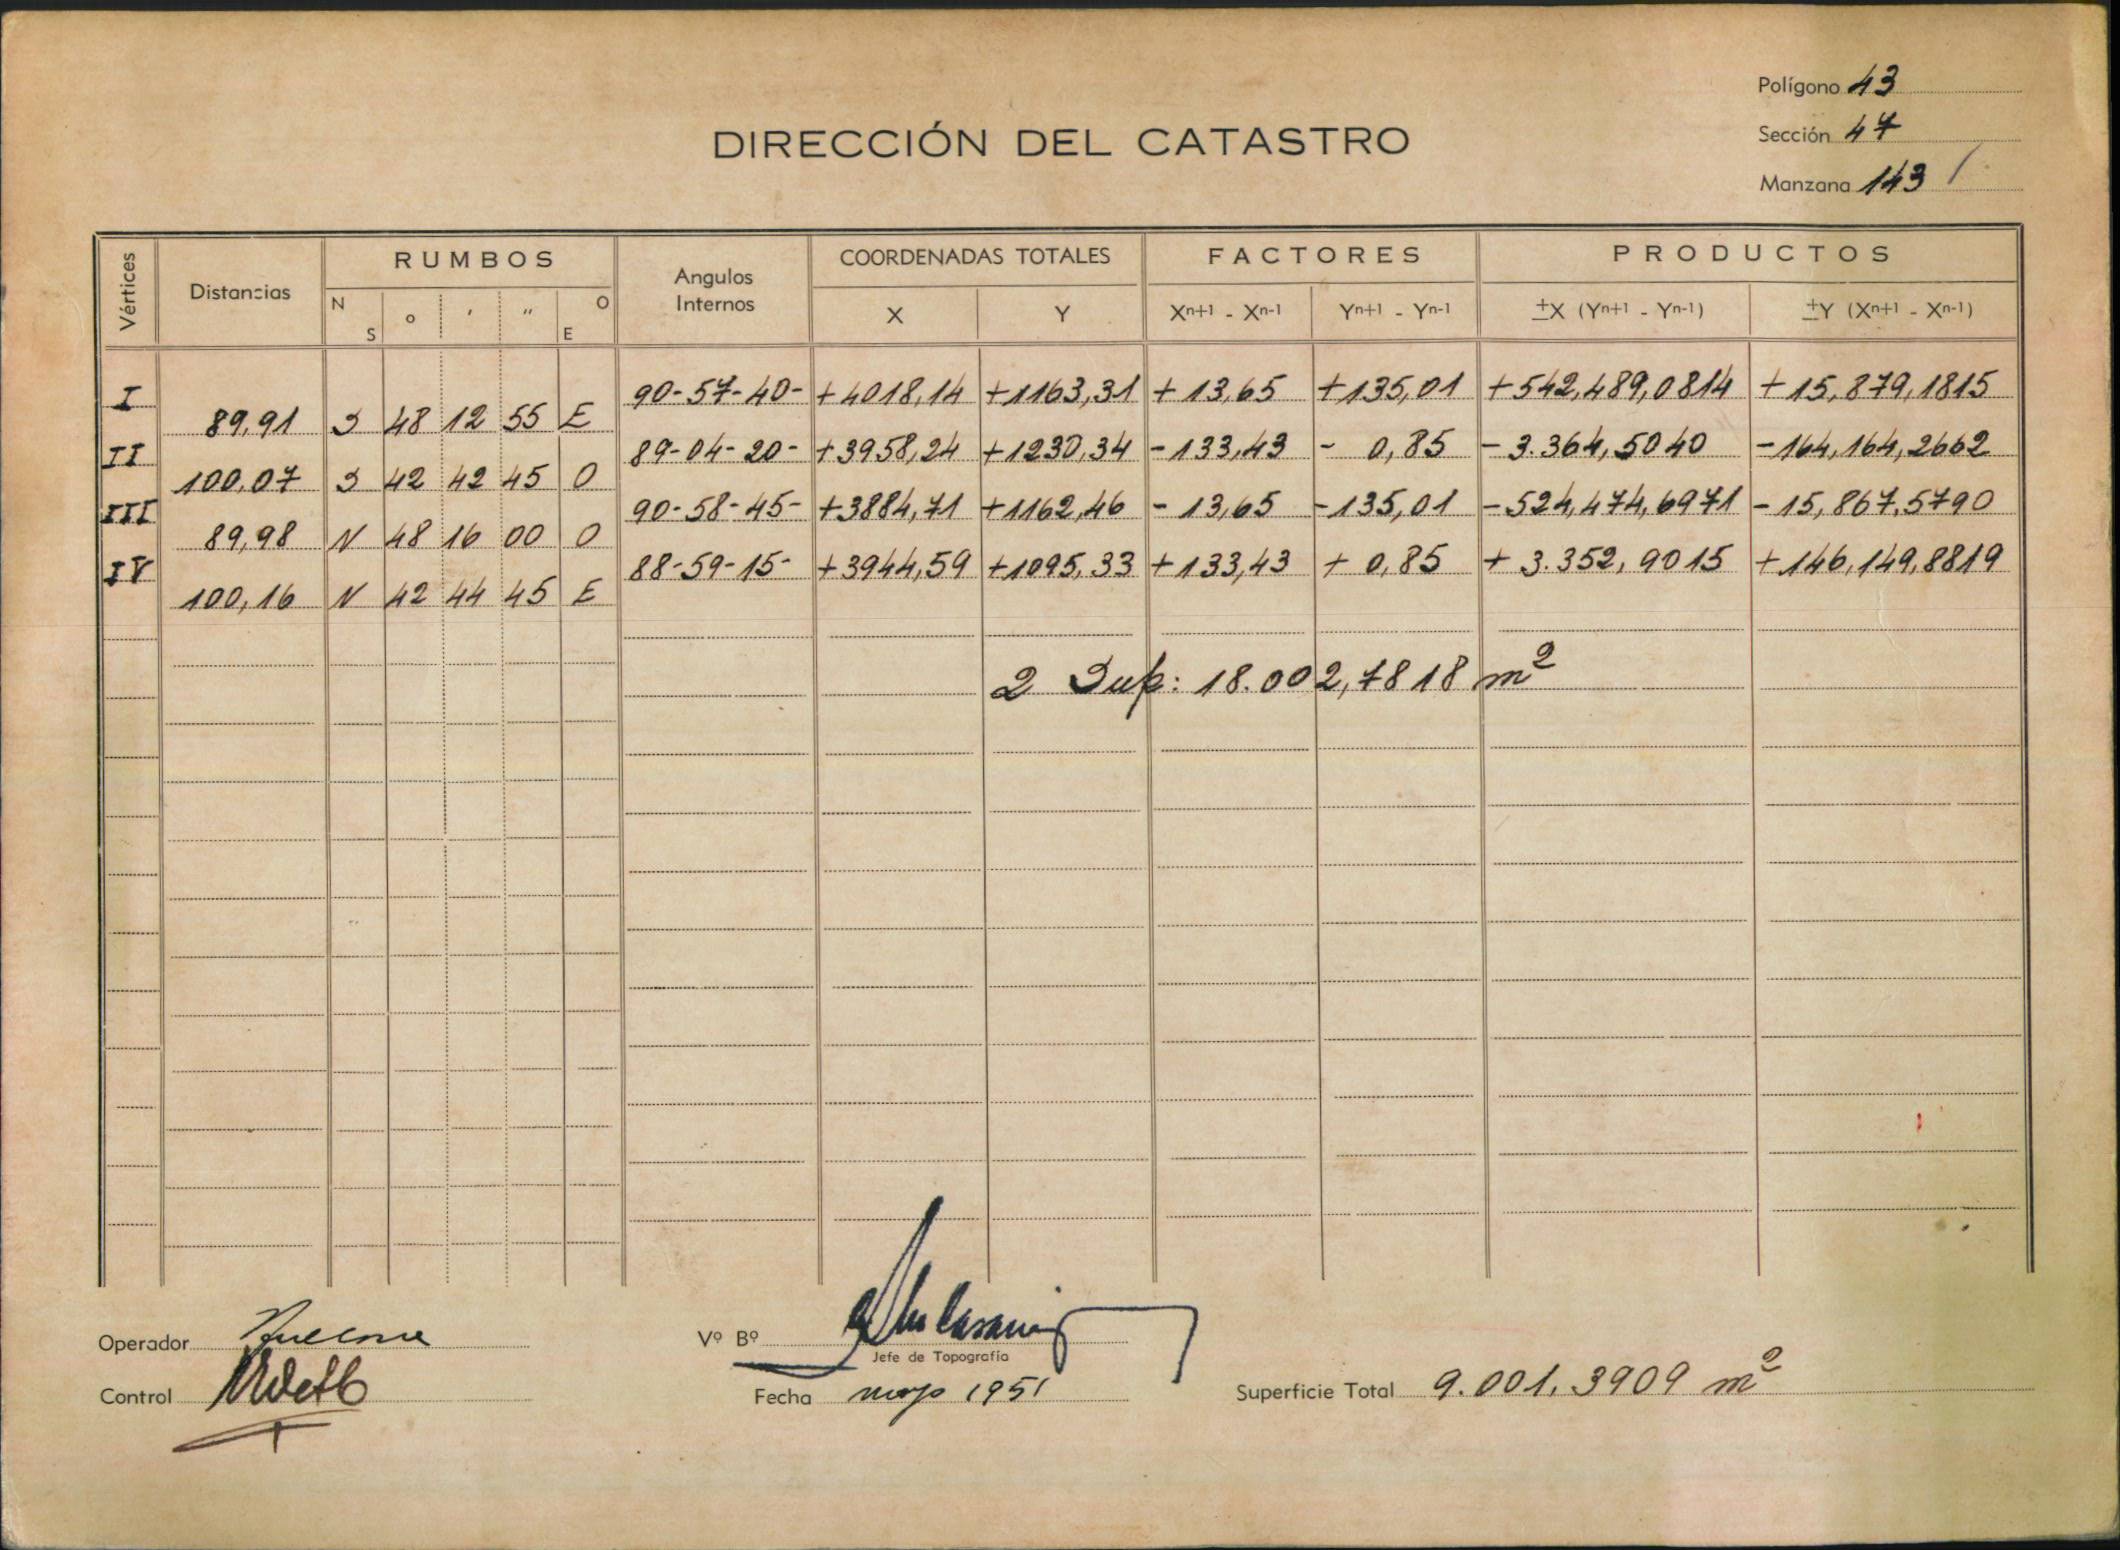 Polígono 43
Sección 47
Manzana 143
DIRECCIÓN DEL CATASTRO
Vértices Distancias RUMBOS Angulos Internos COORDENADAS TOTALES FACTORES PRODUCTOS
N S ° ' " O E X Y Xn+1 - Xn-1 Yn+1 - Yn-1 ±X (Yn+1 - Yn-1) ±Y (Xn+1 - Xn-1)
I 90-57-40- +4018,14 +1163,31 + 13,65 +135,01 +542,489,0814 + 15,879,1815
89,91 S 48 12 55 E
II 89-04-20- +3958,24 +1230,34 -133,43 - 0,85 - 3.364,5040 -164,164,2662
100,07 S 42 42 45 O
III 90-58-45- +3884,71 +1162,46 - 13,65 -135,01 -524,474,6971 - 15,867,5790
89,98 N 48 16 00 O
IV 88-59-15- +3944,59 +1095,33 +133,43 + 0,85 + 3.352,9015 +146,149,8819
100,16 N 42 44 45 E
2 Sup: 18.002,7818 m²
Operador
Vº Bº
Jefe de Topografía
Control
Fecha mayo 1951
Superficie Total 9.001,3909 m²